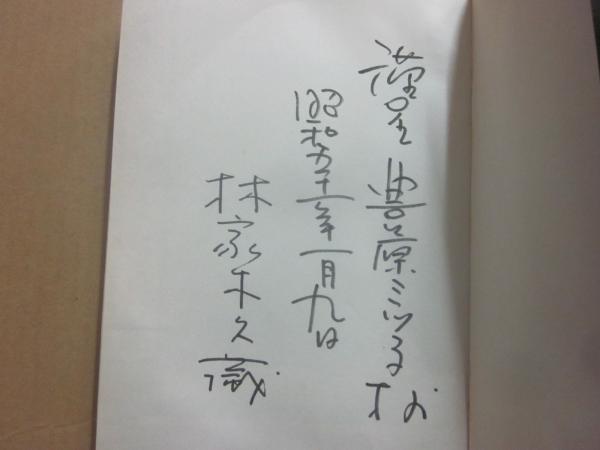 謹呈 豊原ミツ子 様
昭和五十一年一月九日
林家木久蔵